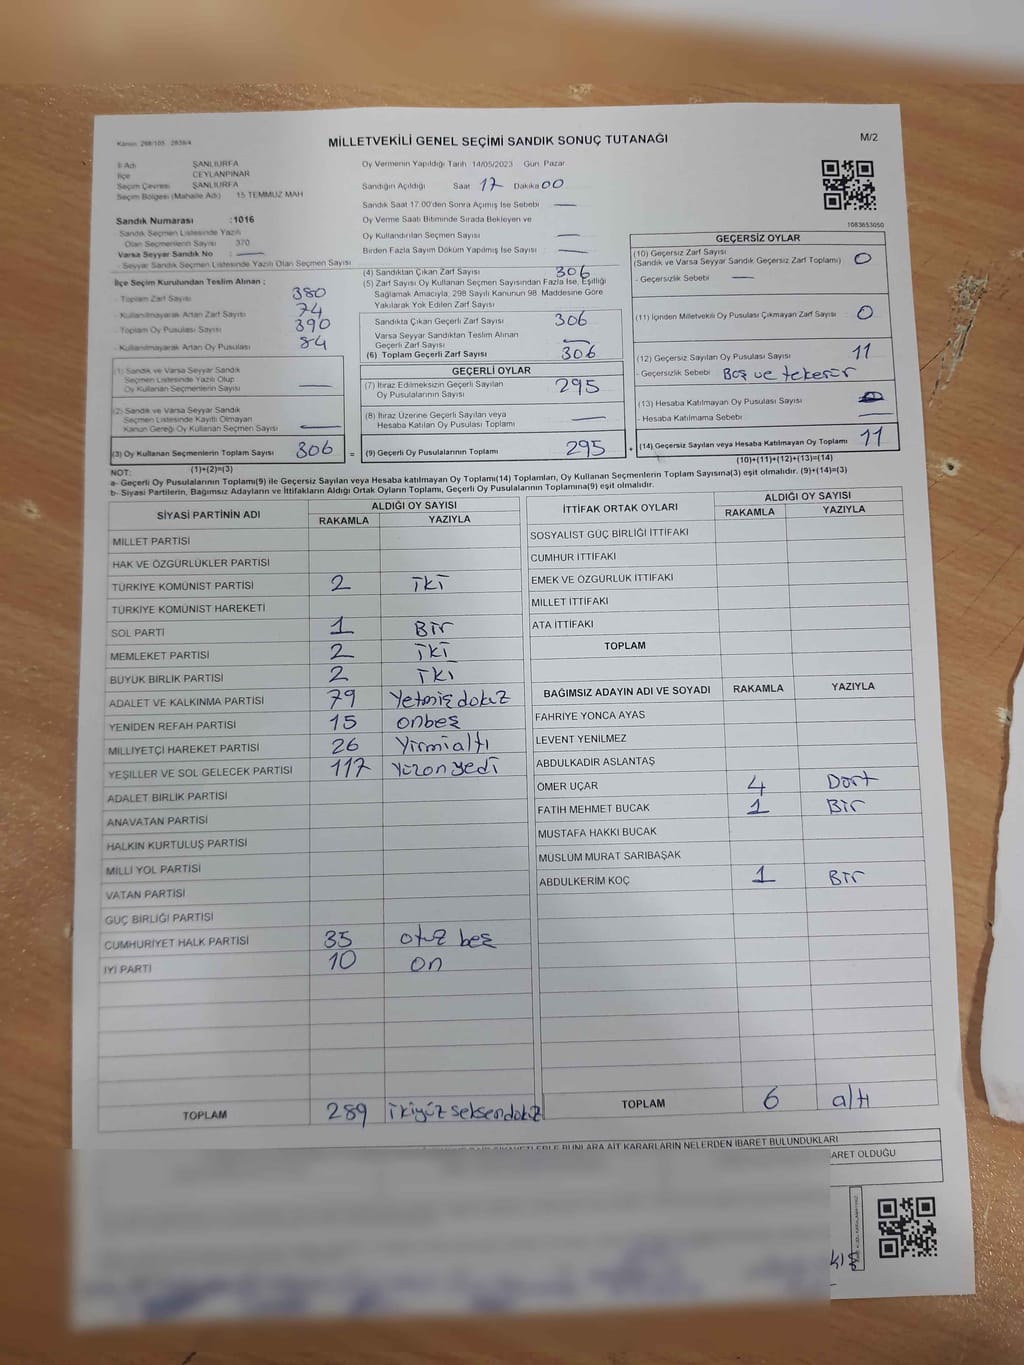 Kanun 298/105 2839/4
MİLLETVEKİLİ GENEL SEÇİMİ SANDIK SONUÇ TUTANAĞI
M/2
İl Adı ŞANLIURFA
İlçe CEYLANPINAR
Seçim Çevresi ŞANLIURFA
Seçim Bölgesi (Mahalle Adı) 15 TEMMUZ MAH
Sandık Numarası : 1016
- Sandık Seçmen Listesinde Yazılı
Olan Seçmenlerin Sayısı 370
Varsa Seyyar Sandık No : —
- Seyyar Sandık Seçmen Listesinde Yazılı Olan Seçmen Sayısı
İlçe Seçim Kurulundan Teslim Alınan ;
- Toplam Zarf Sayısı 380
- Kullanılmayarak Artan Zarf Sayısı 74
- Toplam Oy Pusulası Sayısı 390
- Kullanılmayarak Artan Oy Pusulası 84
(1) Sandık ve Varsa Seyyar Sandık
Seçmen Listesinde Yazılı Olup
Oy Kullanan Seçmenlerin Sayısı —
(2) Sandık ve Varsa Seyyar Sandık
Seçmen Listesinde Kayıtlı Olmayan
Kanun Gereği Oy Kullanan Seçmen Sayısı —
(3) Oy Kullanan Seçmenlerin Toplam Sayısı 306 =
(1)+(2)=(3)
Oy Vermenin Yapıldığı Tarih 14/05/2023 Gün Pazar
Sandığın Açıldığı Saat 17 Dakika 00
Sandık Saat 17:00'den Sonra Açımış İse Sebebi —
Oy Verme Saati Bitiminde Sırada Bekleyen ve
Oy Kullandırılan Seçmen Sayısı —
Birden Fazla Sayım Döküm Yapılmış İse Sayısı : —
(4) Sandıktan Çıkan Zarf Sayısı 306
(5) Zarf Sayısı Oy Kullanan Seçmen Sayısından Fazla İse, Eşitliği
Sağlamak Amacıyla, 298 Sayılı Kanunun 98. Maddesine Göre
Yakılarak Yok Edilen Zarf Sayısı —
Sandıkta Çıkan Geçerli Zarf Sayısı 306
Varsa Seyyar Sandıktan Teslim Alınan
Geçerli Zarf Sayısı —
(6) Toplam Geçerli Zarf Sayısı 306
GEÇERLİ OYLAR
(7) İtiraz Edilmeksizin Geçerli Sayılan
Oy Pusulalarının Sayısı 295
(8) İtiraz Üzerine Geçerli Sayılan veya
Hesaba Katılan Oy Pusulası Toplamı —
(9) Geçerli Oy Pusulalarının Toplamı 295 +
1083653050
GEÇERSİZ OYLAR
(10) Geçersiz Zarf Sayısı
(Sandık ve Varsa Seyyar Sandık Geçersiz Zarf Toplamı) 0
- Geçersizlik Sebebi —
(11) İçinden Milletvekili Oy Pusulası Çıkmayan Zarf Sayısı 0
(12) Geçersiz Sayılan Oy Pusulası Sayısı 11
- Geçersizlik Sebebi Boş ve tekerür
(13) Hesaba Katılmayan Oy Pusulası Sayısı
- Hesaba Katılmama Sebebi —
(14) Geçersiz Sayılan veya Hesaba Katılmayan Oy Toplamı 11
(10)+(11)+(12)+(13)=(14)
NOT:
a- Geçerli Oy Pusulalarının Toplamı(9) ile Geçersiz Sayılan veya Hesaba katılmayan Oy Toplamı(14) Toplamları, Oy Kullanan Seçmenlerin Toplam Sayısına(3) eşit olmalıdır. (9)+(14)=(3)
b- Siyasi Partilerin, Bağımsız Adayların ve İttifakların Aldığı Ortak Oyların Toplamı, Geçerli Oy Pusulalarının Toplamına(9) eşit olmalıdır.
SİYASİ PARTİNİN ADI ALDIĞI OY SAYISI
RAKAMLA YAZIYLA
MİLLET PARTİSİ
HAK VE ÖZGÜRLÜKLER PARTİSİ
TÜRKİYE KOMÜNİST PARTİSİ 2 iki
TÜRKİYE KOMÜNİST HAREKETİ
SOL PARTİ 1 Bir
MEMLEKET PARTİSİ 2 iki
BÜYÜK BİRLİK PARTİSİ 2 iki
ADALET VE KALKINMA PARTİSİ 79 Yetmiş dokuz
YENİDEN REFAH PARTİSİ 15 onbeş
MİLLİYETÇİ HAREKET PARTİSİ 26 Yirmialtı
YEŞİLLER VE SOL GELECEK PARTİSİ 117 Yüzonyedi
ADALET BİRLİK PARTİSİ
ANAVATAN PARTİSİ
HALKIN KURTULUŞ PARTİSİ
MİLLİ YOL PARTİSİ
VATAN PARTİSİ
GÜÇ BİRLİĞİ PARTİSİ
CUMHURİYET HALK PARTİSİ 35 otuz beş
İYİ PARTİ 10 on
TOPLAM 289 ikiyüz seksendokuz
İTTİFAK ORTAK OYLARI ALDIĞI OY SAYISI
RAKAMLA YAZIYLA
SOSYALİST GÜÇ BİRLİĞİ İTTİFAKI
CUMHUR İTTİFAKI
EMEK VE ÖZGÜRLÜK İTTİFAKI
MİLLET İTTİFAKI
ATA İTTİFAKI
TOPLAM
BAĞIMSIZ ADAYIN ADI VE SOYADI RAKAMLA YAZIYLA
FAHRİYE YONCA AYAS
LEVENT YENİLMEZ
ABDULKADİR ASLANTAŞ
ÖMER UÇAR 4 Dört
FATİH MEHMET BUCAK 1 Bir
MUSTAFA HAKKI BUCAK
MÜSLÜM MURAT SARIBAŞAK
ABDULKERİM KOÇ 1 Bir
TOPLAM 6 altı
BUNLARA AİT KARARLARIN NELERDEN İBARET BULUNDUKLARI
BARET OLDUĞU